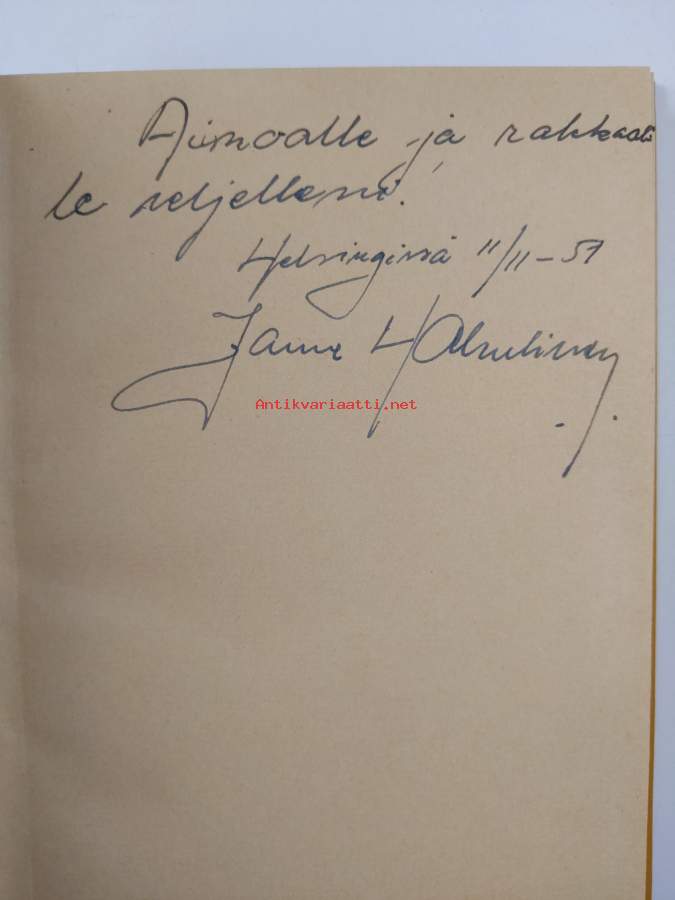 Aimoalle ja rakkaal
le veljelleni!
Helsingissä 11/11-51
Janne
Antikvariaatti.net